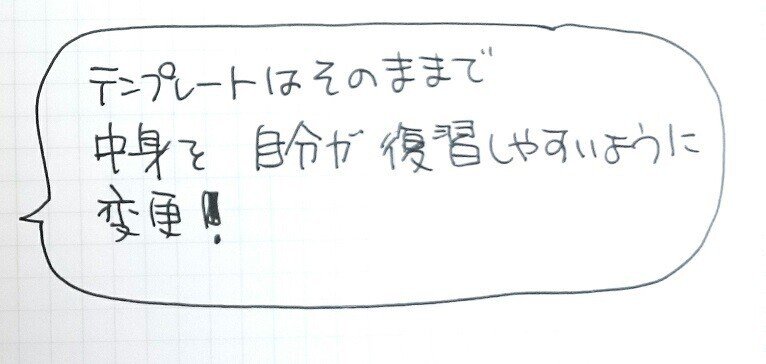 テンプレートはそのままで
中身を 自分が 復習しやすいように
変更!